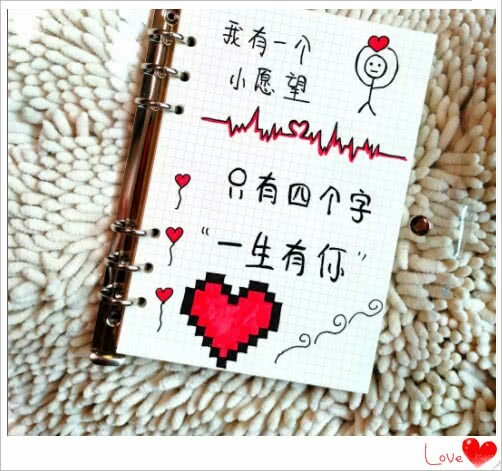 我有一个
小愿望
只有四个字
“一生有你”
Love